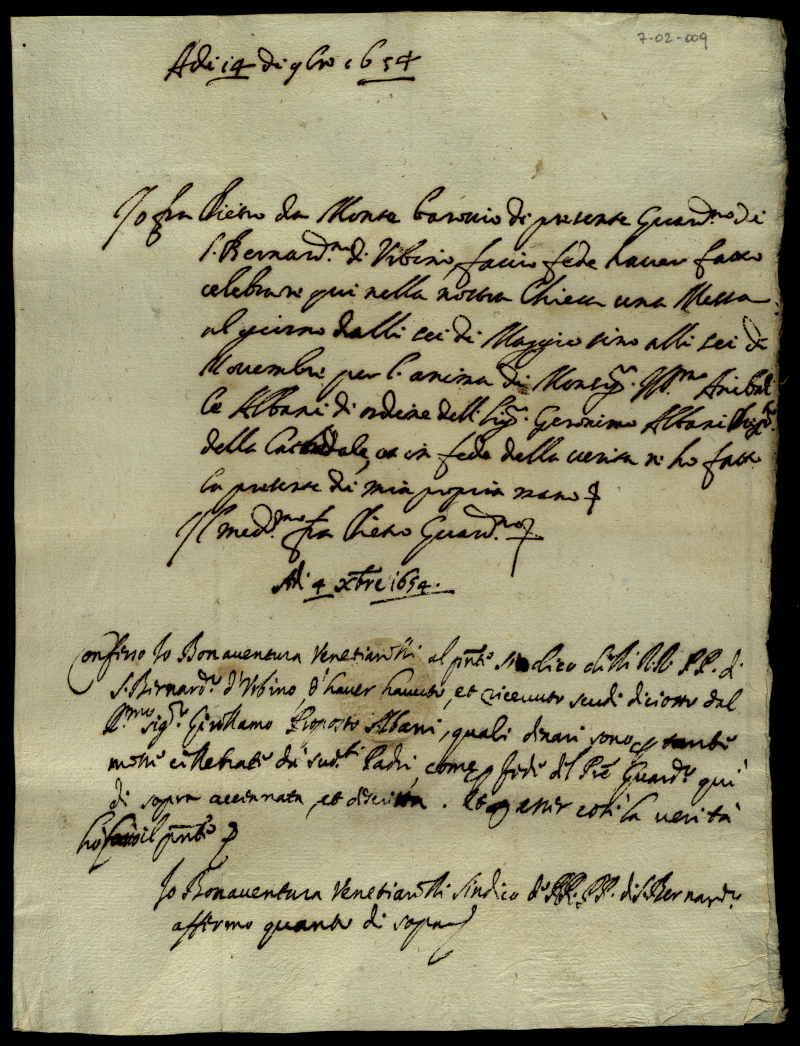 7-02-009
Adi 14 di 9bre 1654
Io fra Pietro da Monte baroccio di presente Guard.no di
S. Bernard.no di Urbino faccio fede haver fatto
celebrare qui nella nostra Chiesa una Messa
al giorno dalli sei di Maggio sino alli sei di
Novembre per l'anima di Monsig.r Ill.mo Anibal
le Albani di ordine dell Sig.r Geronimo Albani
della Catedale, et in fede della verita n'ho fatto
la presente di mia propria mano
Il med.mo fra Pietro Guard.no
Adi 4 xbre 1654.
Confesso Io Bonaventura Venetianelli al pnte Sindico delli RR. PP. di
S. Bernard.o d'Urbino, d'haver havuto, et ricevuto scudi diciotto dal
Ill.mo sig.re Girollamo Proposto Albani, quali denari sono p tante
messe cellebrate da sud.ti Padri, come p fede del Pre Guard.o qui
di sopra accennata, et descritta. Et p esser così la verità
hò il pnte
Io Bonaventura Venetianelli sindico de RR. PP. di S. Bernard.o
affermo quanto di sopra